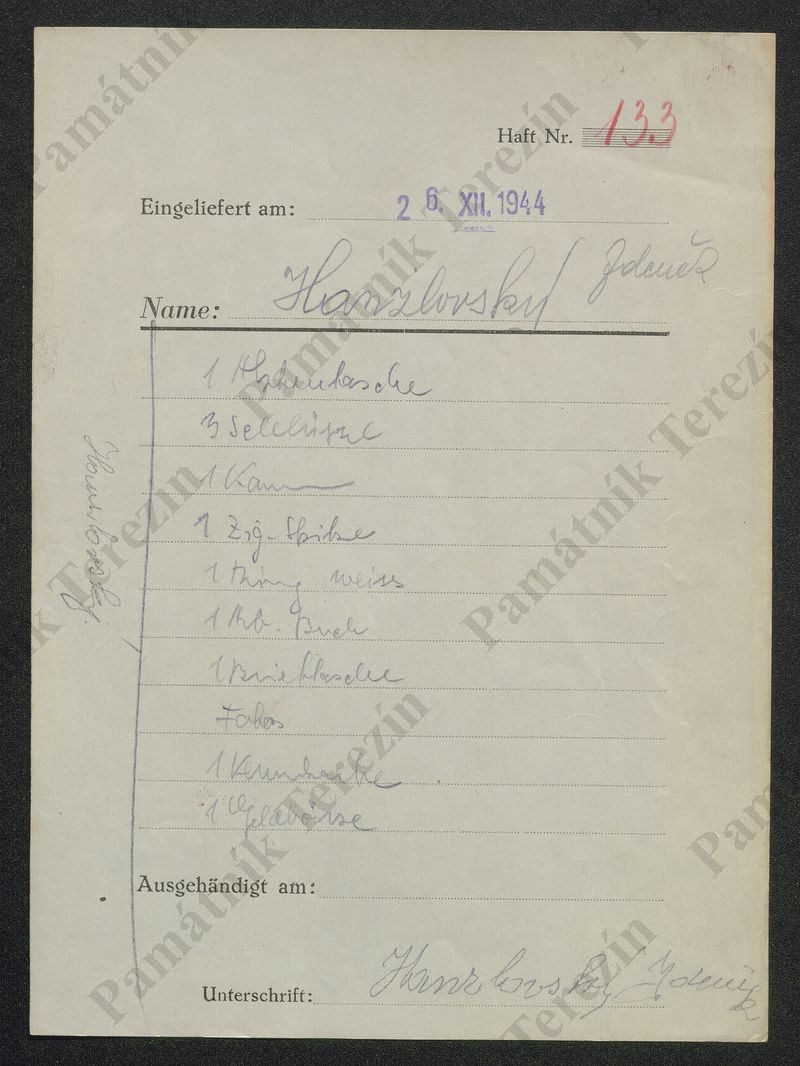 Haft Nr. 133
Eingeliefert am: 26. XII. 1944
Name: Hanzlovský Zdeněk
1 Aktentasche
3 Schlüssel
1 Kamm
1 Zig-Spitze
1 Ring weiss
1 Arb. Buch
1 Brieftasche
Fotos
1 Kennkarte
1 Geldbörse
Ausgehändigt am:
Unterschrift: Hanzlovský Zdeněk
Památník Terezín